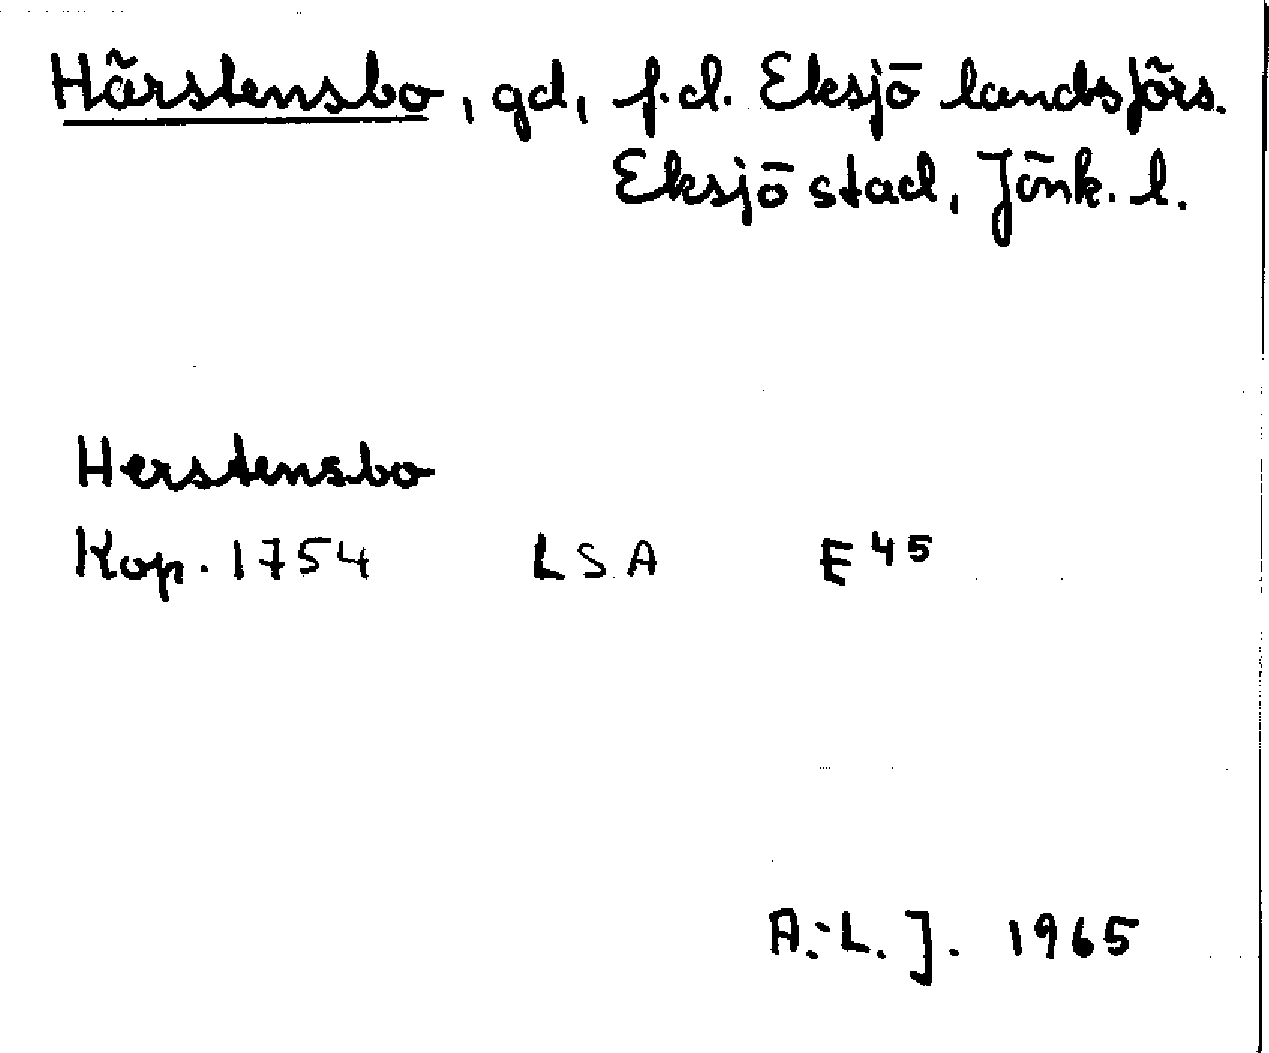 Härstensbo, gd, f.d. Eksjö landsförs.
Eksjö stad, Jönk. l.
Herstensbo
Kop. 1754 LSA E 45
A.-L. J. 1965